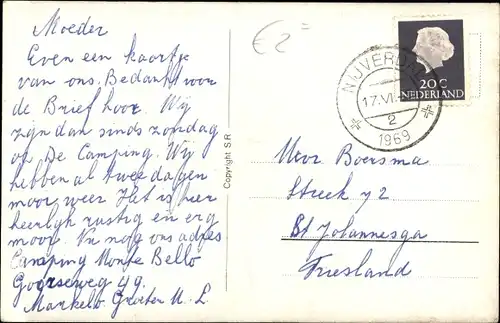 Moeder
Even een kaartje
van ons. Bedankt voor
de Brief hoor. Wij
zijn dan sinds zondag
op De Camping. Wij
hebben al twee dagen
moor weer Het is hier
heerlijk rustig en erg
moor. Nu nog ons adres
Camping Monte Bello
Goorseweg 49.
Markelo Groeten U. L
Copyright S.R
€2=
20 C
NEDERLAND
NIJVERDAL
17.VI.
2
1969
Mevr Boersma
Streek 72
St Johannesga
Friesland